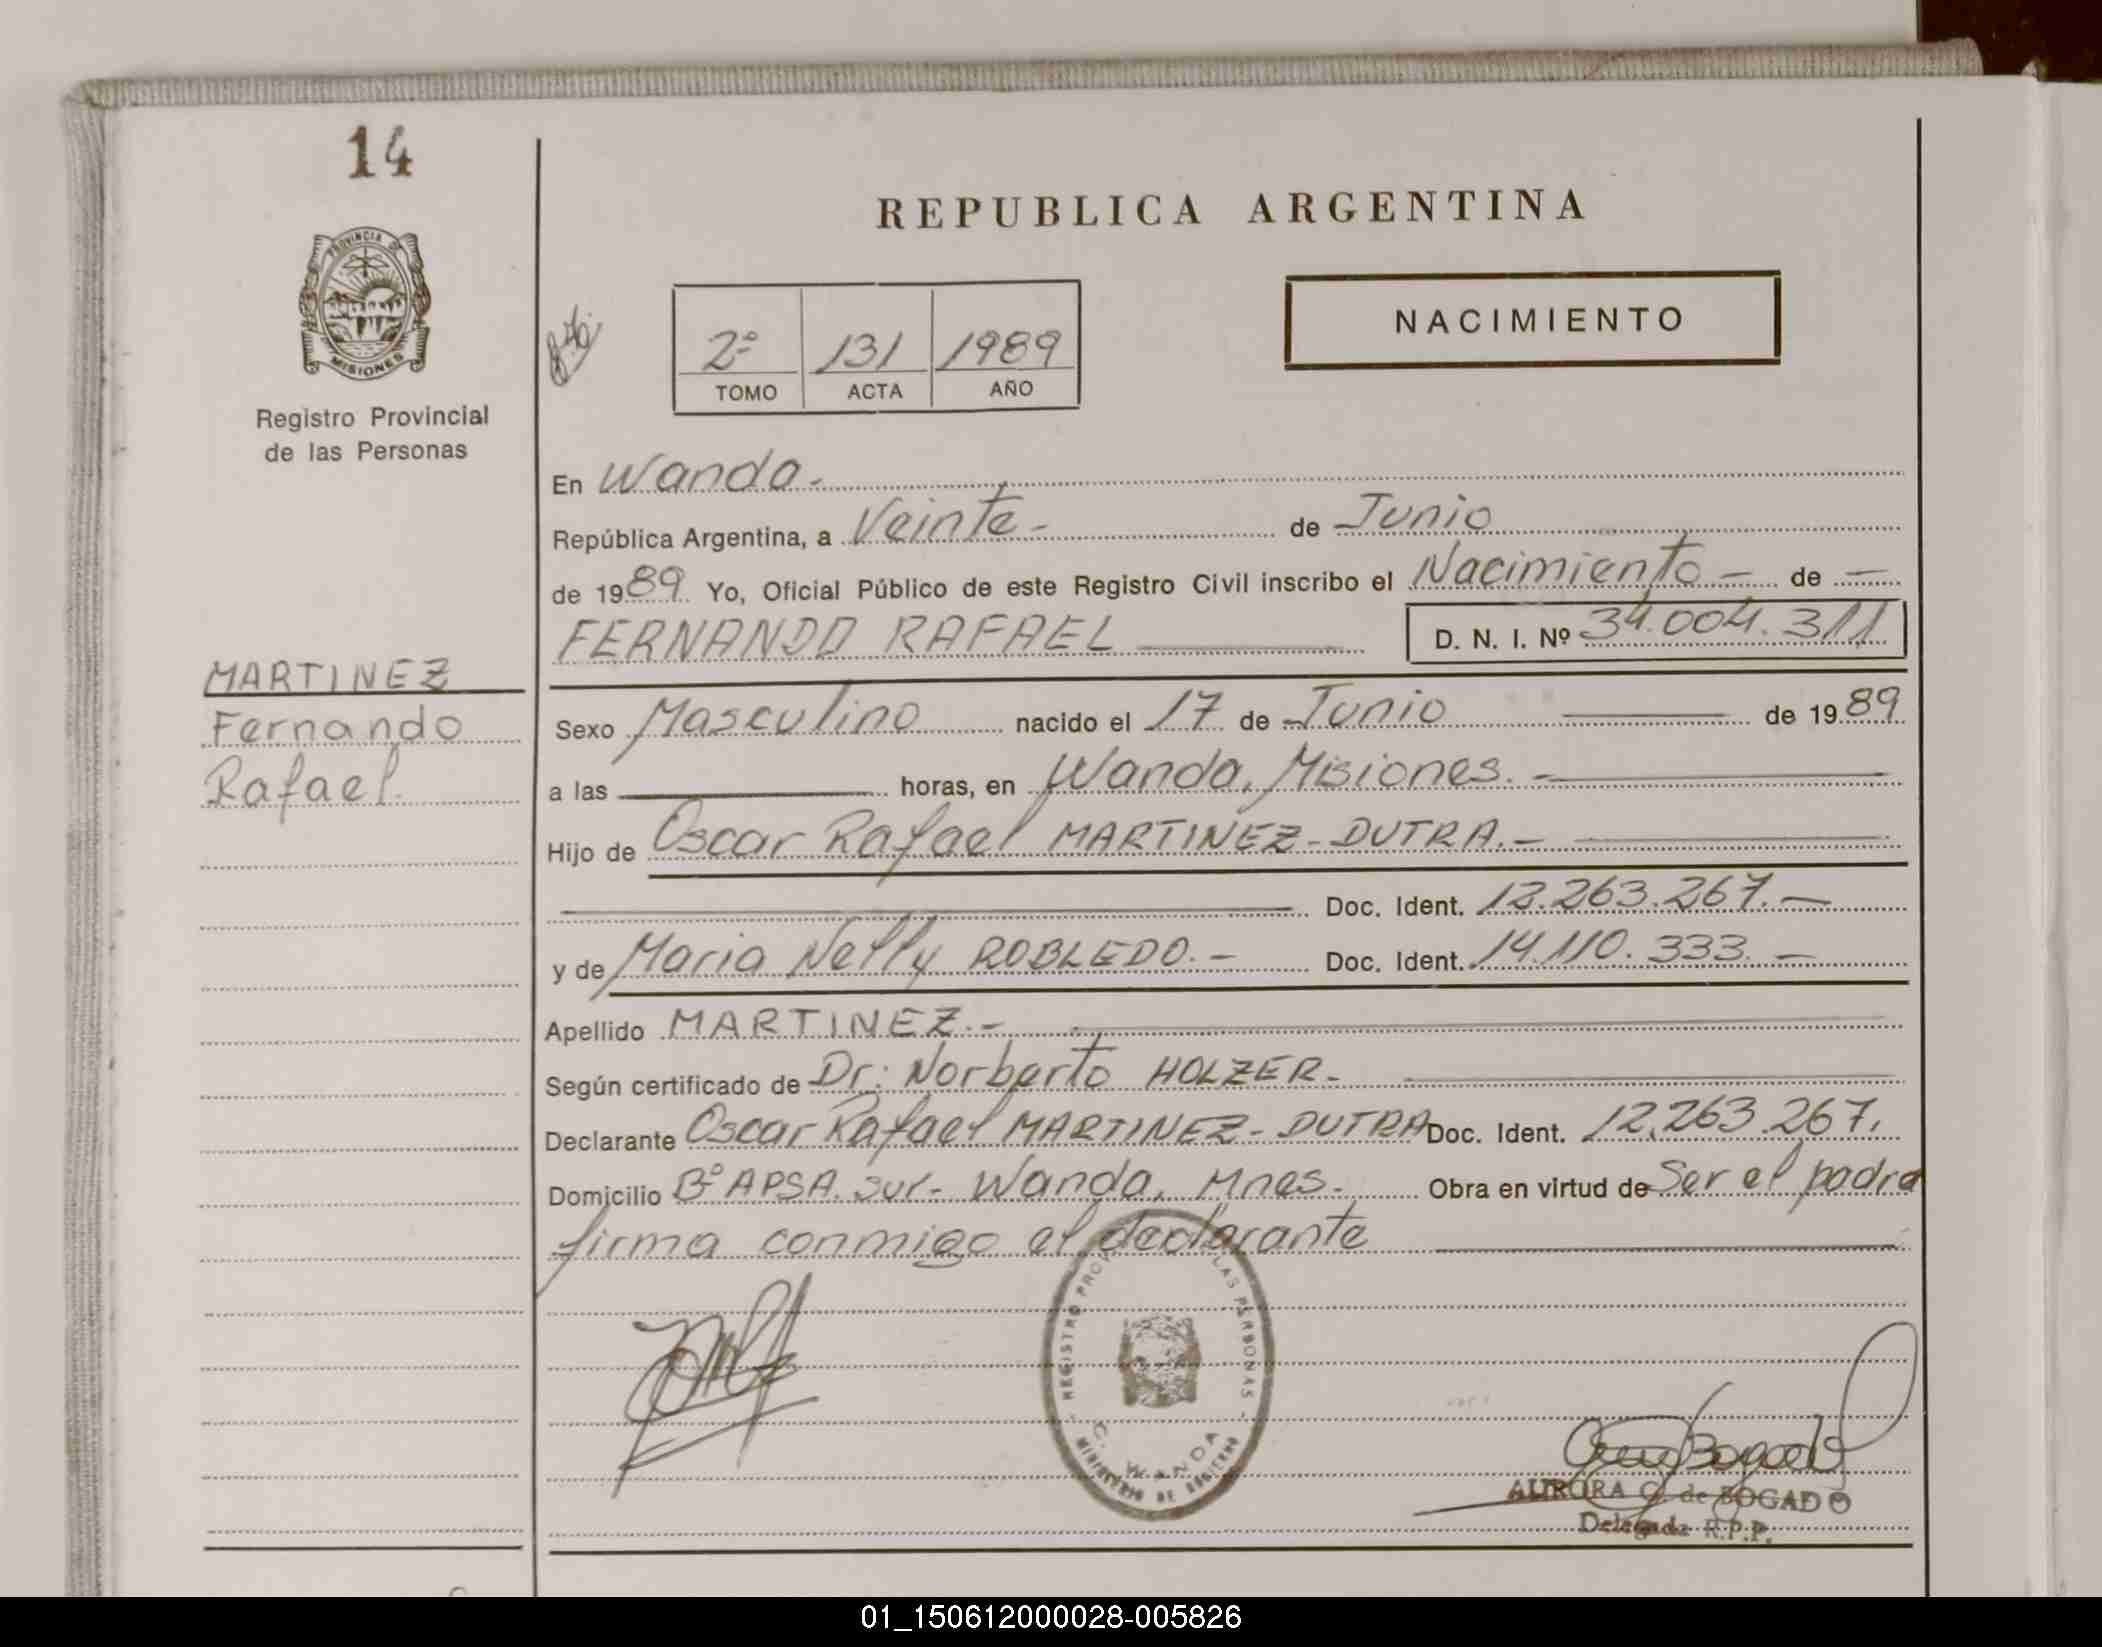 14
PROVINCIA DE
MISIONES
Registro Provincial
de las Personas
MARTINEZ
Fernando
Rafael.
REPUBLICA ARGENTINA
NACIMIENTO
2º 131 1989
TOMO ACTA AÑO
En Wanda.-
República Argentina, a Veinte- de Junio
de 1989 Yo, Oficial Público de este Registro Civil inscribo el Nacimiento - de -
FERNANDO RAFAEL D. N. I. Nº 34.004.311
Sexo Masculino nacido el 17 de Junio de 1989
a las horas, en Wanda, Misiones.-
Hijo de Oscar Rafael MARTINEZ-DUTRA.-
Doc. Ident. 12.263.267.-
y de Maria Nelly ROBLEDO.- Doc. Ident. 14.110.333.-
Apellido MARTINEZ.-
Según certificado de Dr: Norberto HOLZER-
Declarante Oscar Rafael MARTINEZ-DUTRA Doc. Ident. 12.263.267.
Domicilio Bº APSA. Sur- Wanda, Mnes- Obra en virtud de Ser el padre
firma conmigo el declarante
REGISTRO LAS PERSONAS
WANDA
MINISTERIO DE GOBIERNO
AURORA G. de BOGADO
Delegada R.P.P.
01_150612000028-005826